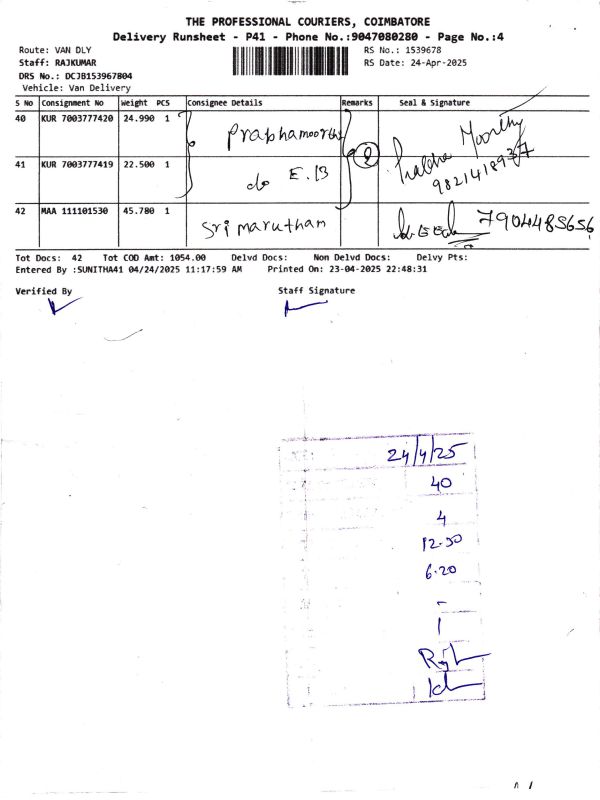 THE PROFESSIONAL COURIERS, COIMBATORE
Delivery Runsheet - P41 - Phone No.:9047080280 - Page No.:4
Route: VAN DLY
RS No.: 1539678
Staff: RAJKUMAR
RS Date: 24-Apr-2025
DRS No.: DCJB153967804
Vehicle: Van Delivery
S No Consignment No Weight PCS Consignee Details Remarks Seal & Signature
40 KUR 7003777420 24.990 1 Prabhamoorthi
Prabha Moorthy
41 KUR 7003777419 22.500 1 do E.B
42 MAA 111101530 45.780 1 Sri marutham 7904485656
Tot Docs: 42 Tot COD Amt: 1054.00 Delvd Docs: Non Delvd Docs: Delvy Pts:
Entered By :SUNITHA41 04/24/2025 11:17:59 AM Printed On: 23-04-2025 22:48:31
Verified By Staff Signature
24/4/25
40
4
12.50
6.20
-
1